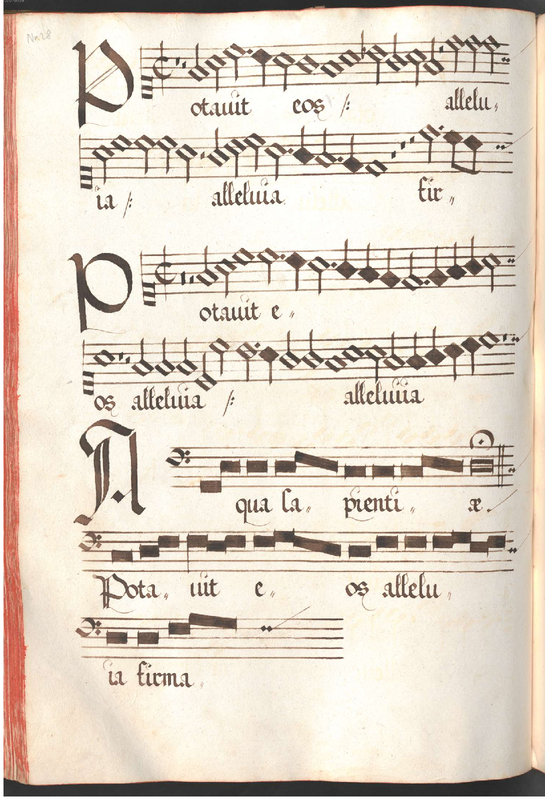 Nr. 28
Potavit eos /: allelu„
ia /: alleluia fir„
Potavit e„
os alleluia /: alleluuia
Aqua sa„ pienti„ æ.
Pota„ uit e„ os allelu„
ia firma„